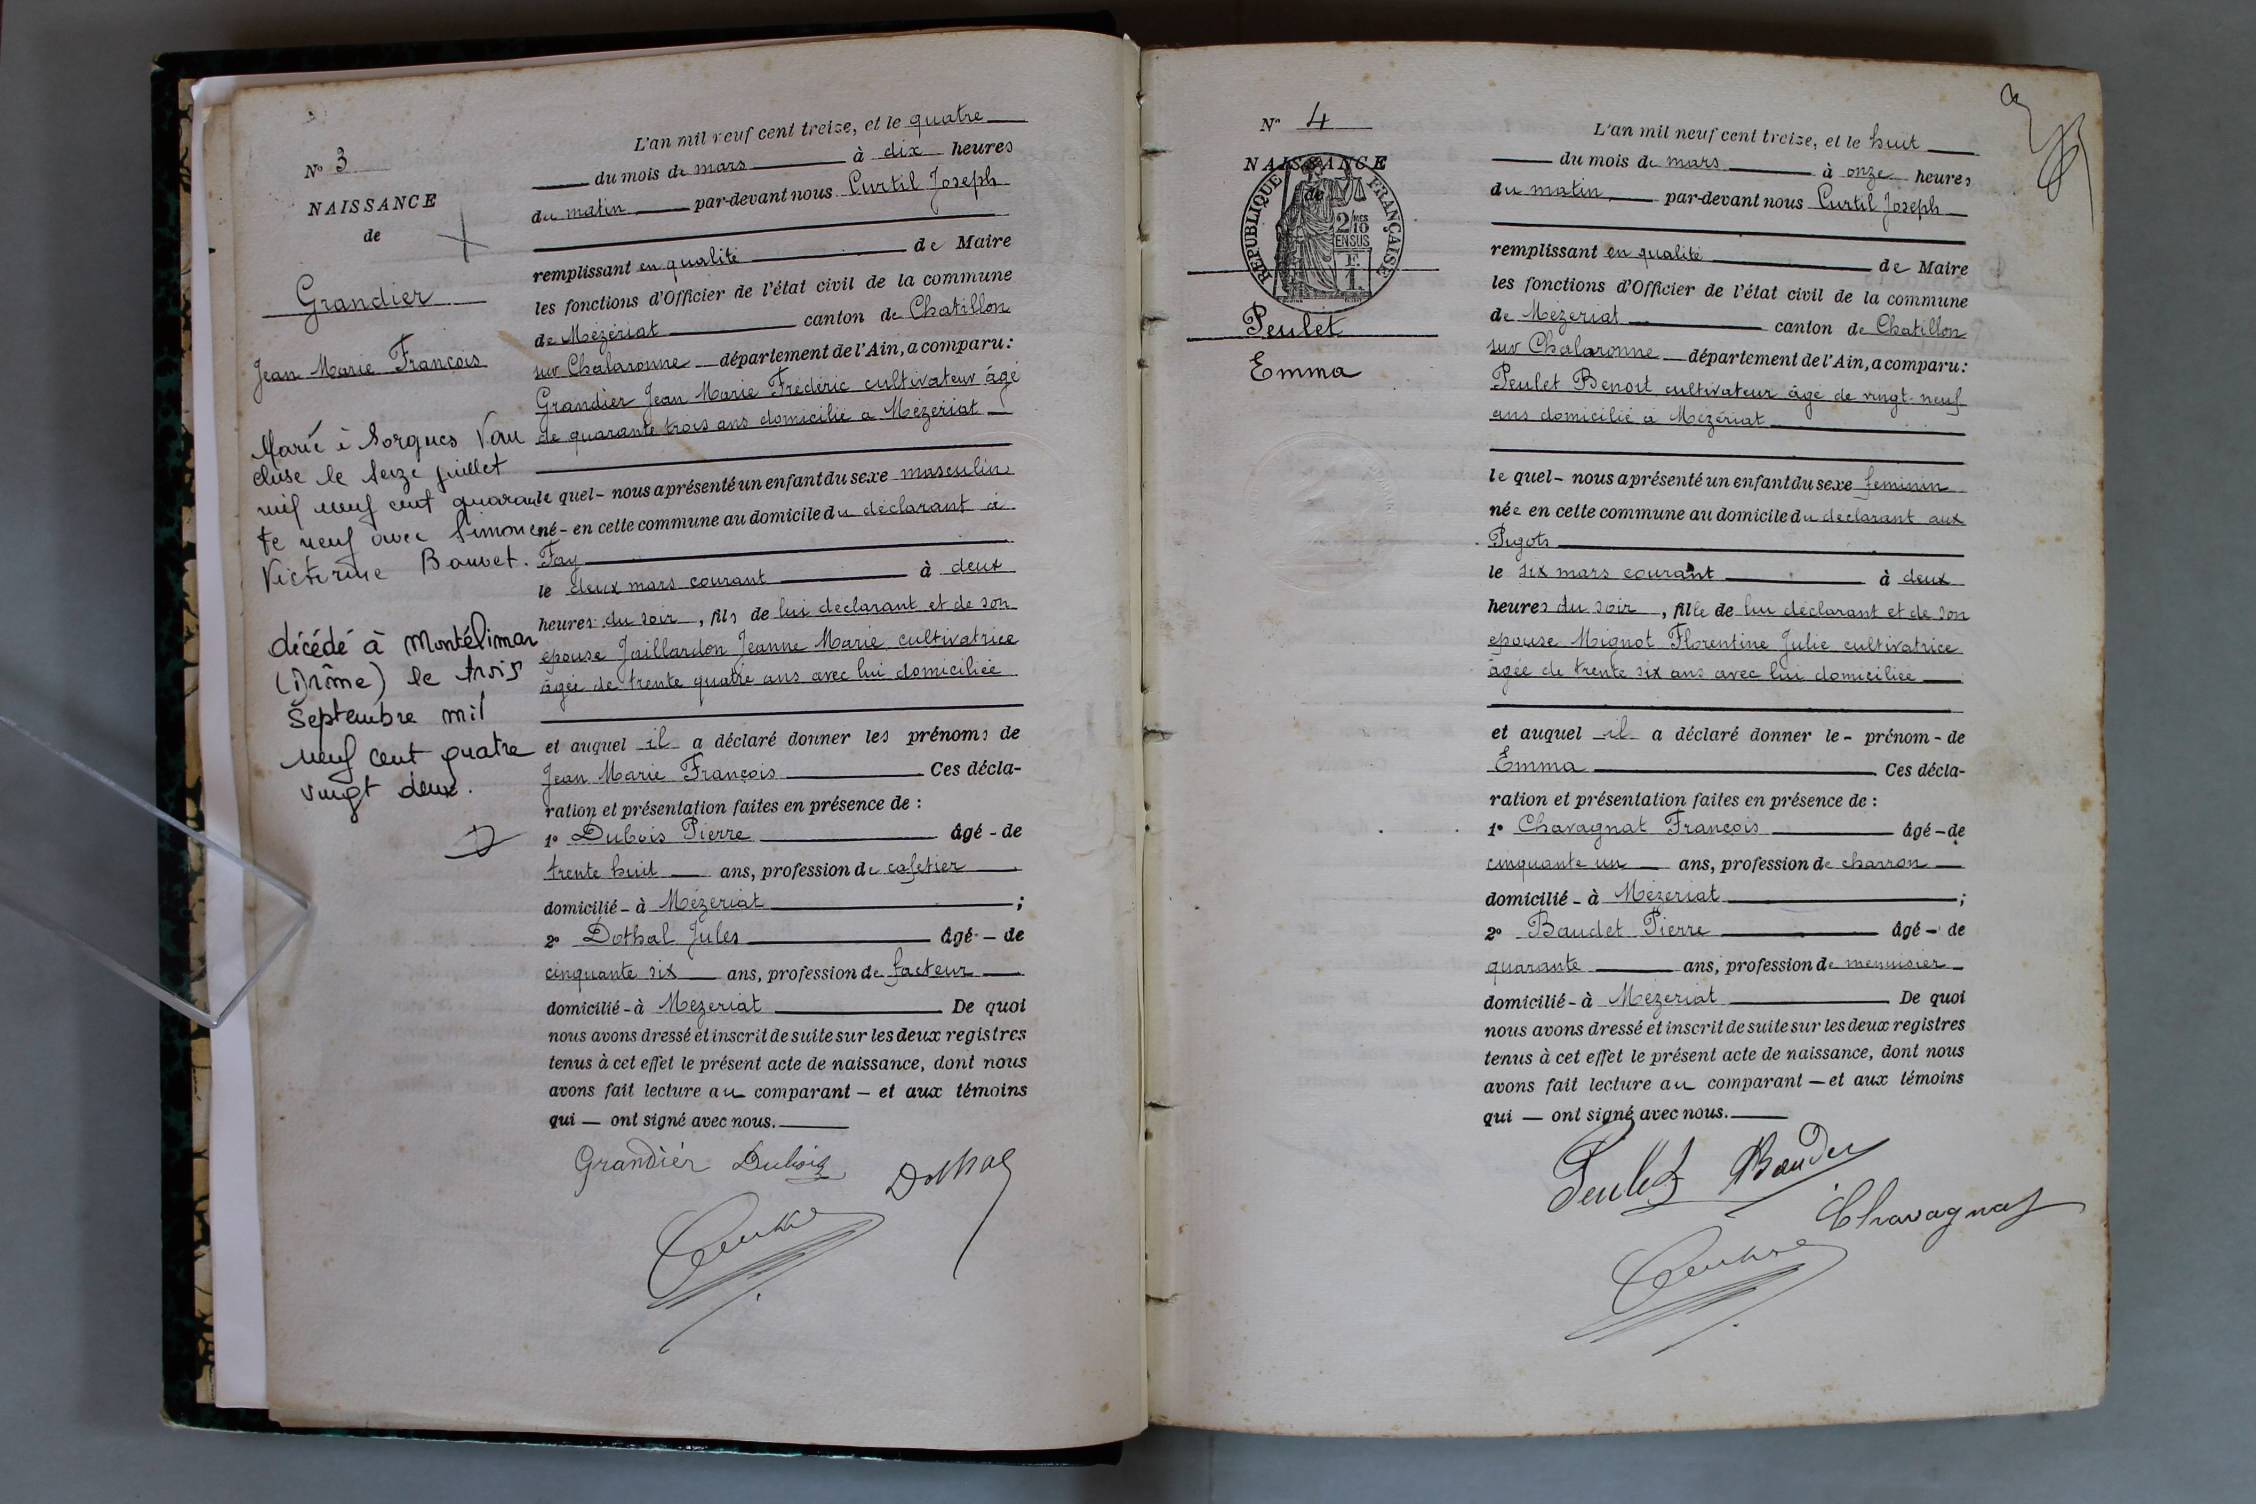 N° 3
NAISSANCE
de
Grandier
Jean Marie François
Marié à Sorgues Vau
cluse le seize juillet
mil neuf cent quaran
te neuf avec Simone
Victorine Bouvet.
décédé à Montélimar
(Drôme) le trois
Septembre mil
neuf cent quatre
vingt deux.
L'an mil neuf cent treize, et le quatre
du mois de mars à dix heures
du matin par-devant nous Curtil Joseph
remplissant en qualité de Maire
les fonctions d'Officier de l'état civil de la commune
de Mézériat canton de Chatillon
sur Chalaronne département de l'Ain, a comparu :
Grandier Jean Marie Frédéric cultivateur âgé
de quarante trois ans domicilié à Mézériat
le quel - nous a présenté un enfant du sexe masculin
né - en cette commune au domicile du déclarant à
Fay
le deux mars courant à deux
heures du soir, fils de lui déclarant et de son
épouse Jaillardon Jeanne Marie cultivatrice
âgée de trente quatre ans avec lui domiciliée
et auquel il a déclaré donner les prénoms de
Jean Marie François Ces décla-
ration et présentation faites en présence de :
1° Dubois Pierre âgé - de
trente huit ans, profession de cafetier
domicilié - à Mézériat ;
2° Dothal Jules âgé - de
cinquante six ans, profession de facteur
domicilié - à Mézériat De quoi
nous avons dressé et inscrit de suite sur les deux registres
tenus à cet effet le présent acte de naissance, dont nous
avons fait lecture au comparant — et aux témoins
qui — ont signé avec nous.
Grandier Dubois Dothal
Curtil
N° 4
NAISSANCE
de
RÉPUBLIQUE FRANÇAISE
2/10 EN SUS
Peulet
Emma
L'an mil neuf cent treize, et le huit
du mois de mars à onze heures
du matin par-devant nous Curtil Joseph
remplissant en qualité de Maire
les fonctions d'Officier de l'état civil de la commune
de Mézériat canton de Chatillon
sur Chalaronne département de l'Ain, a comparu :
Peulet Benoit cultivateur âgé de vingt-neuf
ans domicilié à Mézériat
le quel - nous a présenté un enfant du sexe féminin
née en cette commune au domicile du déclarant aux
Pigots
le six mars courant à deux
heures du soir, fille de lui déclarant et de son
épouse Mignot Florentine Julie cultivatrice
âgée de trente six ans avec lui domiciliée
et auquel il a déclaré donner le - prénom - de
Emma Ces décla-
ration et présentation faites en présence de :
1° Chavagnat François âgé - de
cinquante un ans, profession de charron
domicilié - à Mézériat ;
2° Baudet Pierre âgé - de
quarante ans, profession de menuisier
domicilié - à Mézériat De quoi
nous avons dressé et inscrit de suite sur les deux registres
tenus à cet effet le présent acte de naissance, dont nous
avons fait lecture au comparant — et aux témoins
qui — ont signé avec nous.
Peulet Baudet
Chavagnat
Curtil